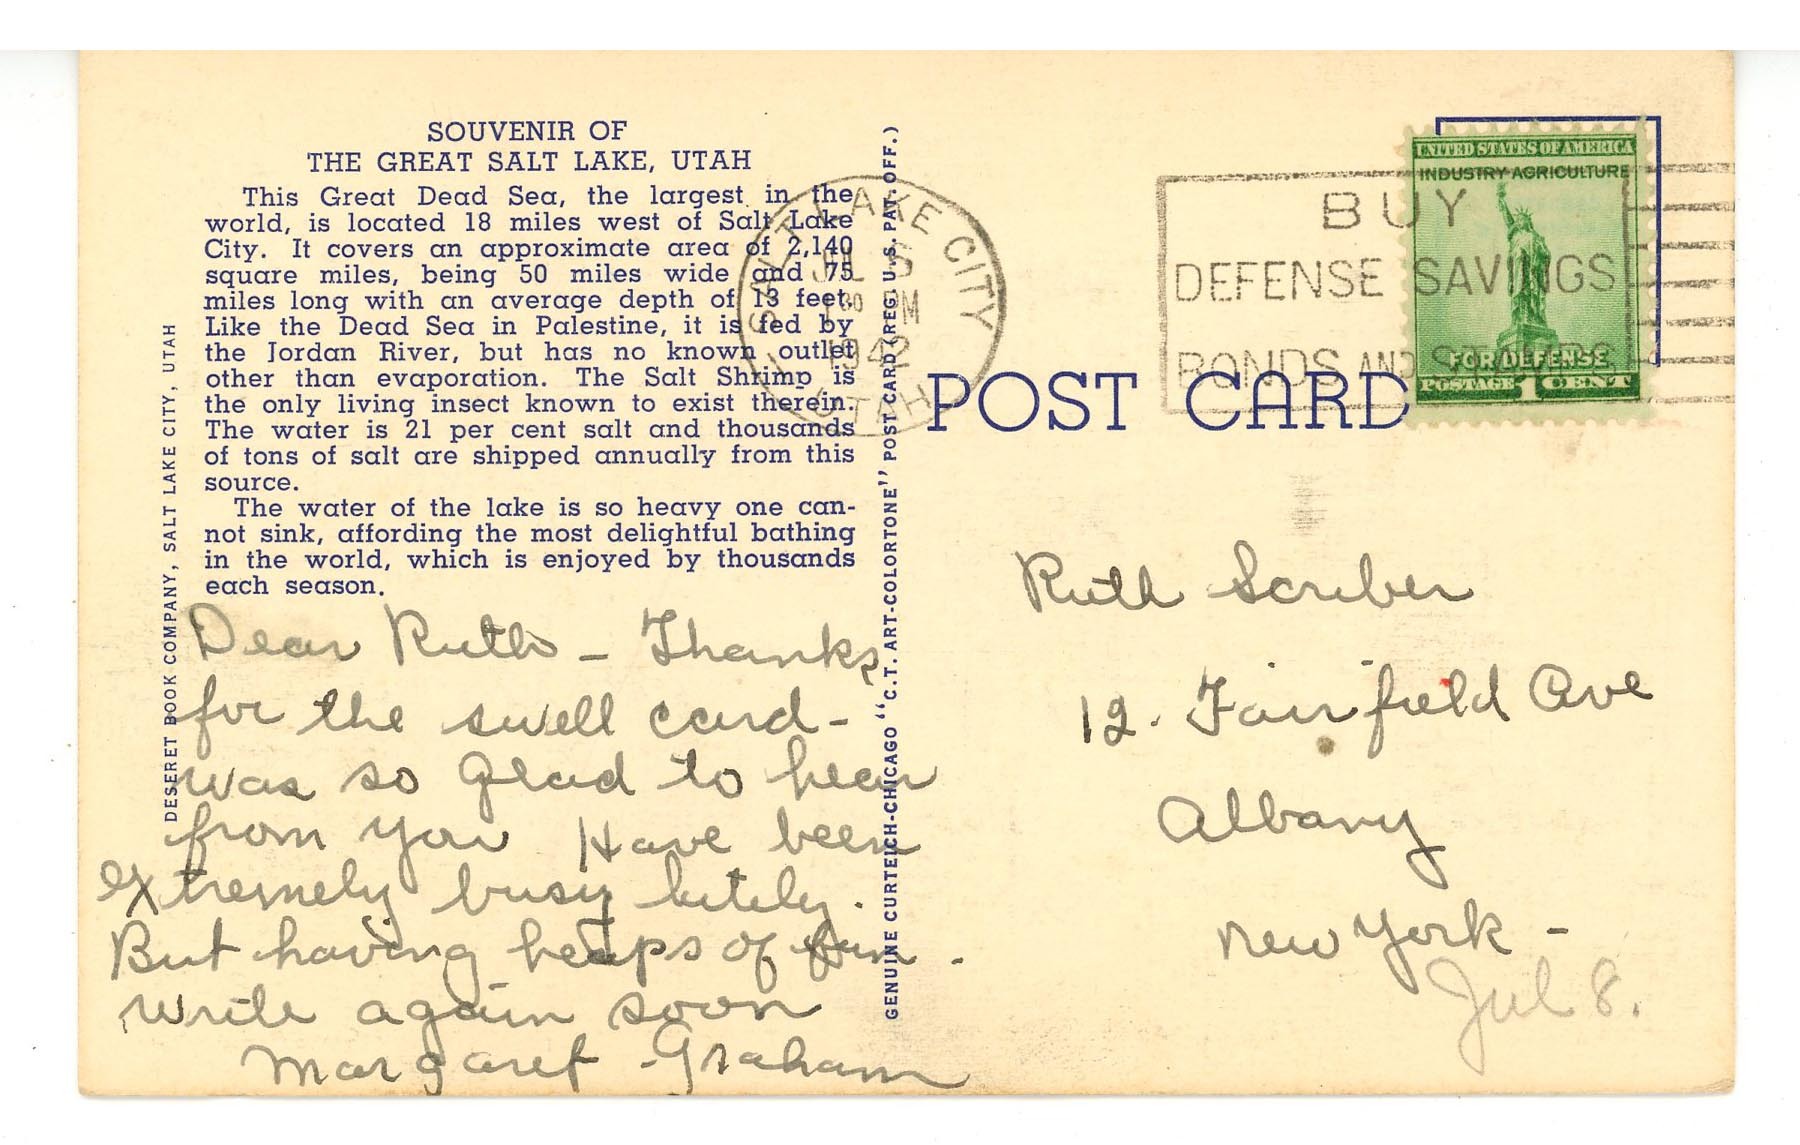 SOUVENIR OF
THE GREAT SALT LAKE, UTAH
This Great Dead Sea, the largest in the
world, is located 18 miles west of Salt Lake
City. It covers an approximate area of 2,140
square miles, being 50 miles wide and 75
miles long with an average depth of 13 feet.
Like the Dead Sea in Palestine, it is fed by
the Jordan River, but has no known outlet
other than evaporation. The Salt Shrimp is
the only living insect known to exist therein.
The water is 21 per cent salt and thousands
of tons of salt are shipped annually from this
source.
The water of the lake is so heavy one can-
not sink, affording the most delightful bathing
in the world, which is enjoyed by thousands
each season.
DESERET BOOK COMPANY, SALT LAKE CITY, UTAH
Dear Ruth - Thanks
for the swell card -
was so glad to hear
from you Have been
extremely busy lately.
But having heaps of fun -
write again soon
Margaret Graham
GENUINE CURTEICH-CHICAGO "C.T. ART-COLORTONE" POST CARD (REG. U.S. PAT. OFF.)
SALT LAKE CITY
JUL 6
1 30 PM
1942
UTAH
BUY
DEFENSE SAVINGS
BONDS AND STAMPS
UNITED STATES OF AMERICA
INDUSTRY AGRICULTURE
FOR DEFENSE
POSTAGE 1 CENT
POST CARD
Ruth Scriber
12. Fairfield Ave
Albany
New York -
Jul 8.